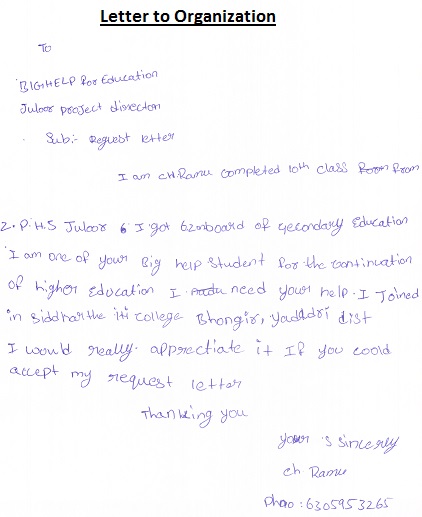 Letter to Organization
To
BIGHELP for Education
Juloor project director
Sub:- Request letter
I am CH.Ramu completed 10th class Room From
Z.P.H.S Juloor & I got 62 on board of secondary Education
I am one of your Big help Student for the continuation
of higher Education I need your help. I Joined
in Siddhartha iti college Bhongir, yadadri dist
I would really appreciate it If you coold
accept my request letter
Thanking you
your's Sincerly
ch Ramu
Phno : 6305953265